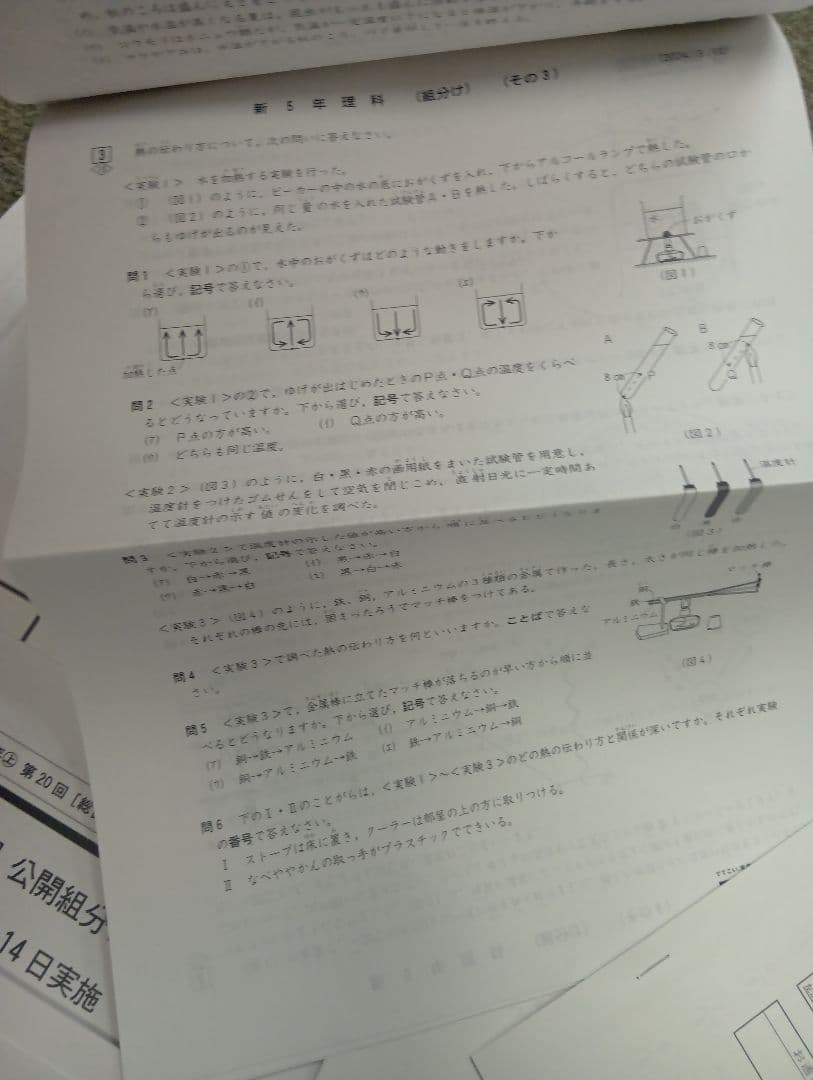 新 5 年 理 科 (組分け) (その3)
3 熱の伝わり方について、次の問いに答えなさい。
<実験1> 水を加熱する実験を行った。
① (図1)のように、ビーカーの中の水の底におがくずを入れ、下からアルコールランプで熱した。
② (図2)のように、同じ量の水を入れた試験管A・Bを熱した。しばらくすると、どちらの試験管の口か
らもゆげが出るのが見えた。
問1 <実験1>の①で、水中のおがくずはどのような動きをしますか。下か
ら選び、記号で答えなさい。
(ア) (イ) (ウ) (エ)
加熱した点
水 おがくず
(図1)
問2 <実験1>の②で、ゆげが出はじめたときのP点・Q点の温度をくらべ
るとどうなっていますか。下から選び、記号で答えなさい。
(ア) P点の方が高い。 (イ) Q点の方が高い。
(ウ) どちらも同じ温度。
A B
8cm P 8cm Q
(図2)
<実験2> (図3)のように、白・黒・赤の画用紙をまいた試験管を用意し、
温度計をつけたゴムせんをして空気を閉じこめ、直射日光に一定時間あ
てて温度計の示す値の変化を調べた。
温度計
(図3)
問3 <実験2>で温度計の示した値が高い方から順に
すか。下から選び、記号で答えなさい。
(ア) 白→赤→黒 (イ) 黒→赤→白
(ウ) 赤→黒→白 (エ) 黒→白→赤
<実験3> (図4)のように、鉄、銅、アルミニウムの3種類の金属で作った、長さ、太さが同じ棒を加熱した。
それぞれの棒の先には、固まったろうでマッチ棒をつけてある。
マッチ棒
銅
鉄
アルミニウム
(図4)
問4 <実験3>で調べた熱の伝わり方を何といいますか。ことばで答えな
さい。
問5 <実験3>で、金属棒に立てたマッチ棒が落ちるのが早い方から順に並
べるとどうなりますか。下から選び、記号で答えなさい。
(ア) 銅→鉄→アルミニウム (イ) アルミニウム→銅→鉄
(ウ) 銅→アルミニウム→鉄 (エ) 鉄→アルミニウム→銅
問6 下のⅠ・Ⅱのことがらは、<実験1>~<実験3>のどの熱の伝わり方と関係が深いですか。それぞれ実験
の番号で答えなさい。
Ⅰ ストーブは床に置き、クーラーは部屋の上の方に取りつける。
Ⅱ なべややかんの取っ手がプラスチックでできている。
上 第20回
公開組分
14日実施